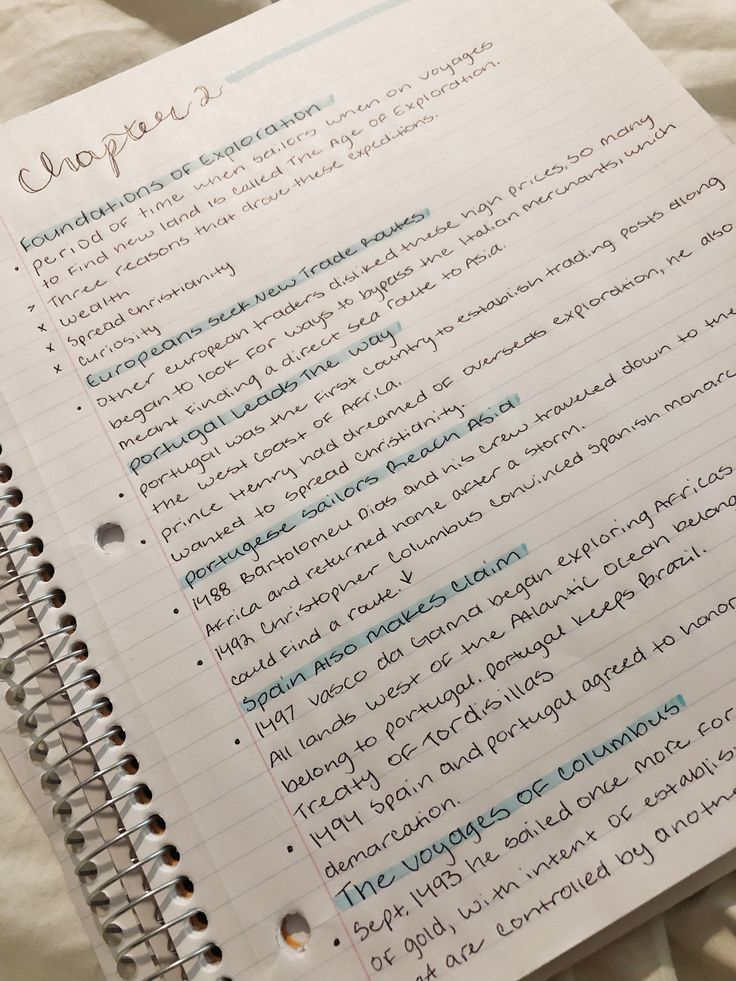 Chapter 2
Foundations of Exploration
• period of time when sailors when on voyages
to find new land is called The Age of Exploration.
> Three reasons that drove these expeditions.
x wealth
x spread christianity
x curiosity
Europeans seek New Trade Routes
• Other european traders disliked these high prices, so many
began to look for ways to bypass the Italian merchants, which
meant finding a direct sea route to Asia.
portugal Leads The way
• portugal was the first country to establish trading posts along
the west coast of Africa.
• prince Henry had dreamed of overseas exploration, he also
wanted to spread christianity.
portugese sailors Reach Asia
• 1488 Bartolomeu Dias and his crew traveled down to the
Africa and returned home after a storm.
• 1492 Christopher Columbus convinced spanish monarc
could find a route. ↓
Spain Also makes Claim
• 1497 vasco da Gama began exploring Africas
All lands west of the Atlantic Ocean belong
belong to portugal. portugal keeps Brazil.
Treaty of Tordisillas
• 1494 Spain and portugal agreed to honor
demarcation.
The voyages of columbus
• Sept. 1493 he sailed once more for
of gold, with intent of establis
are controlled by anothe